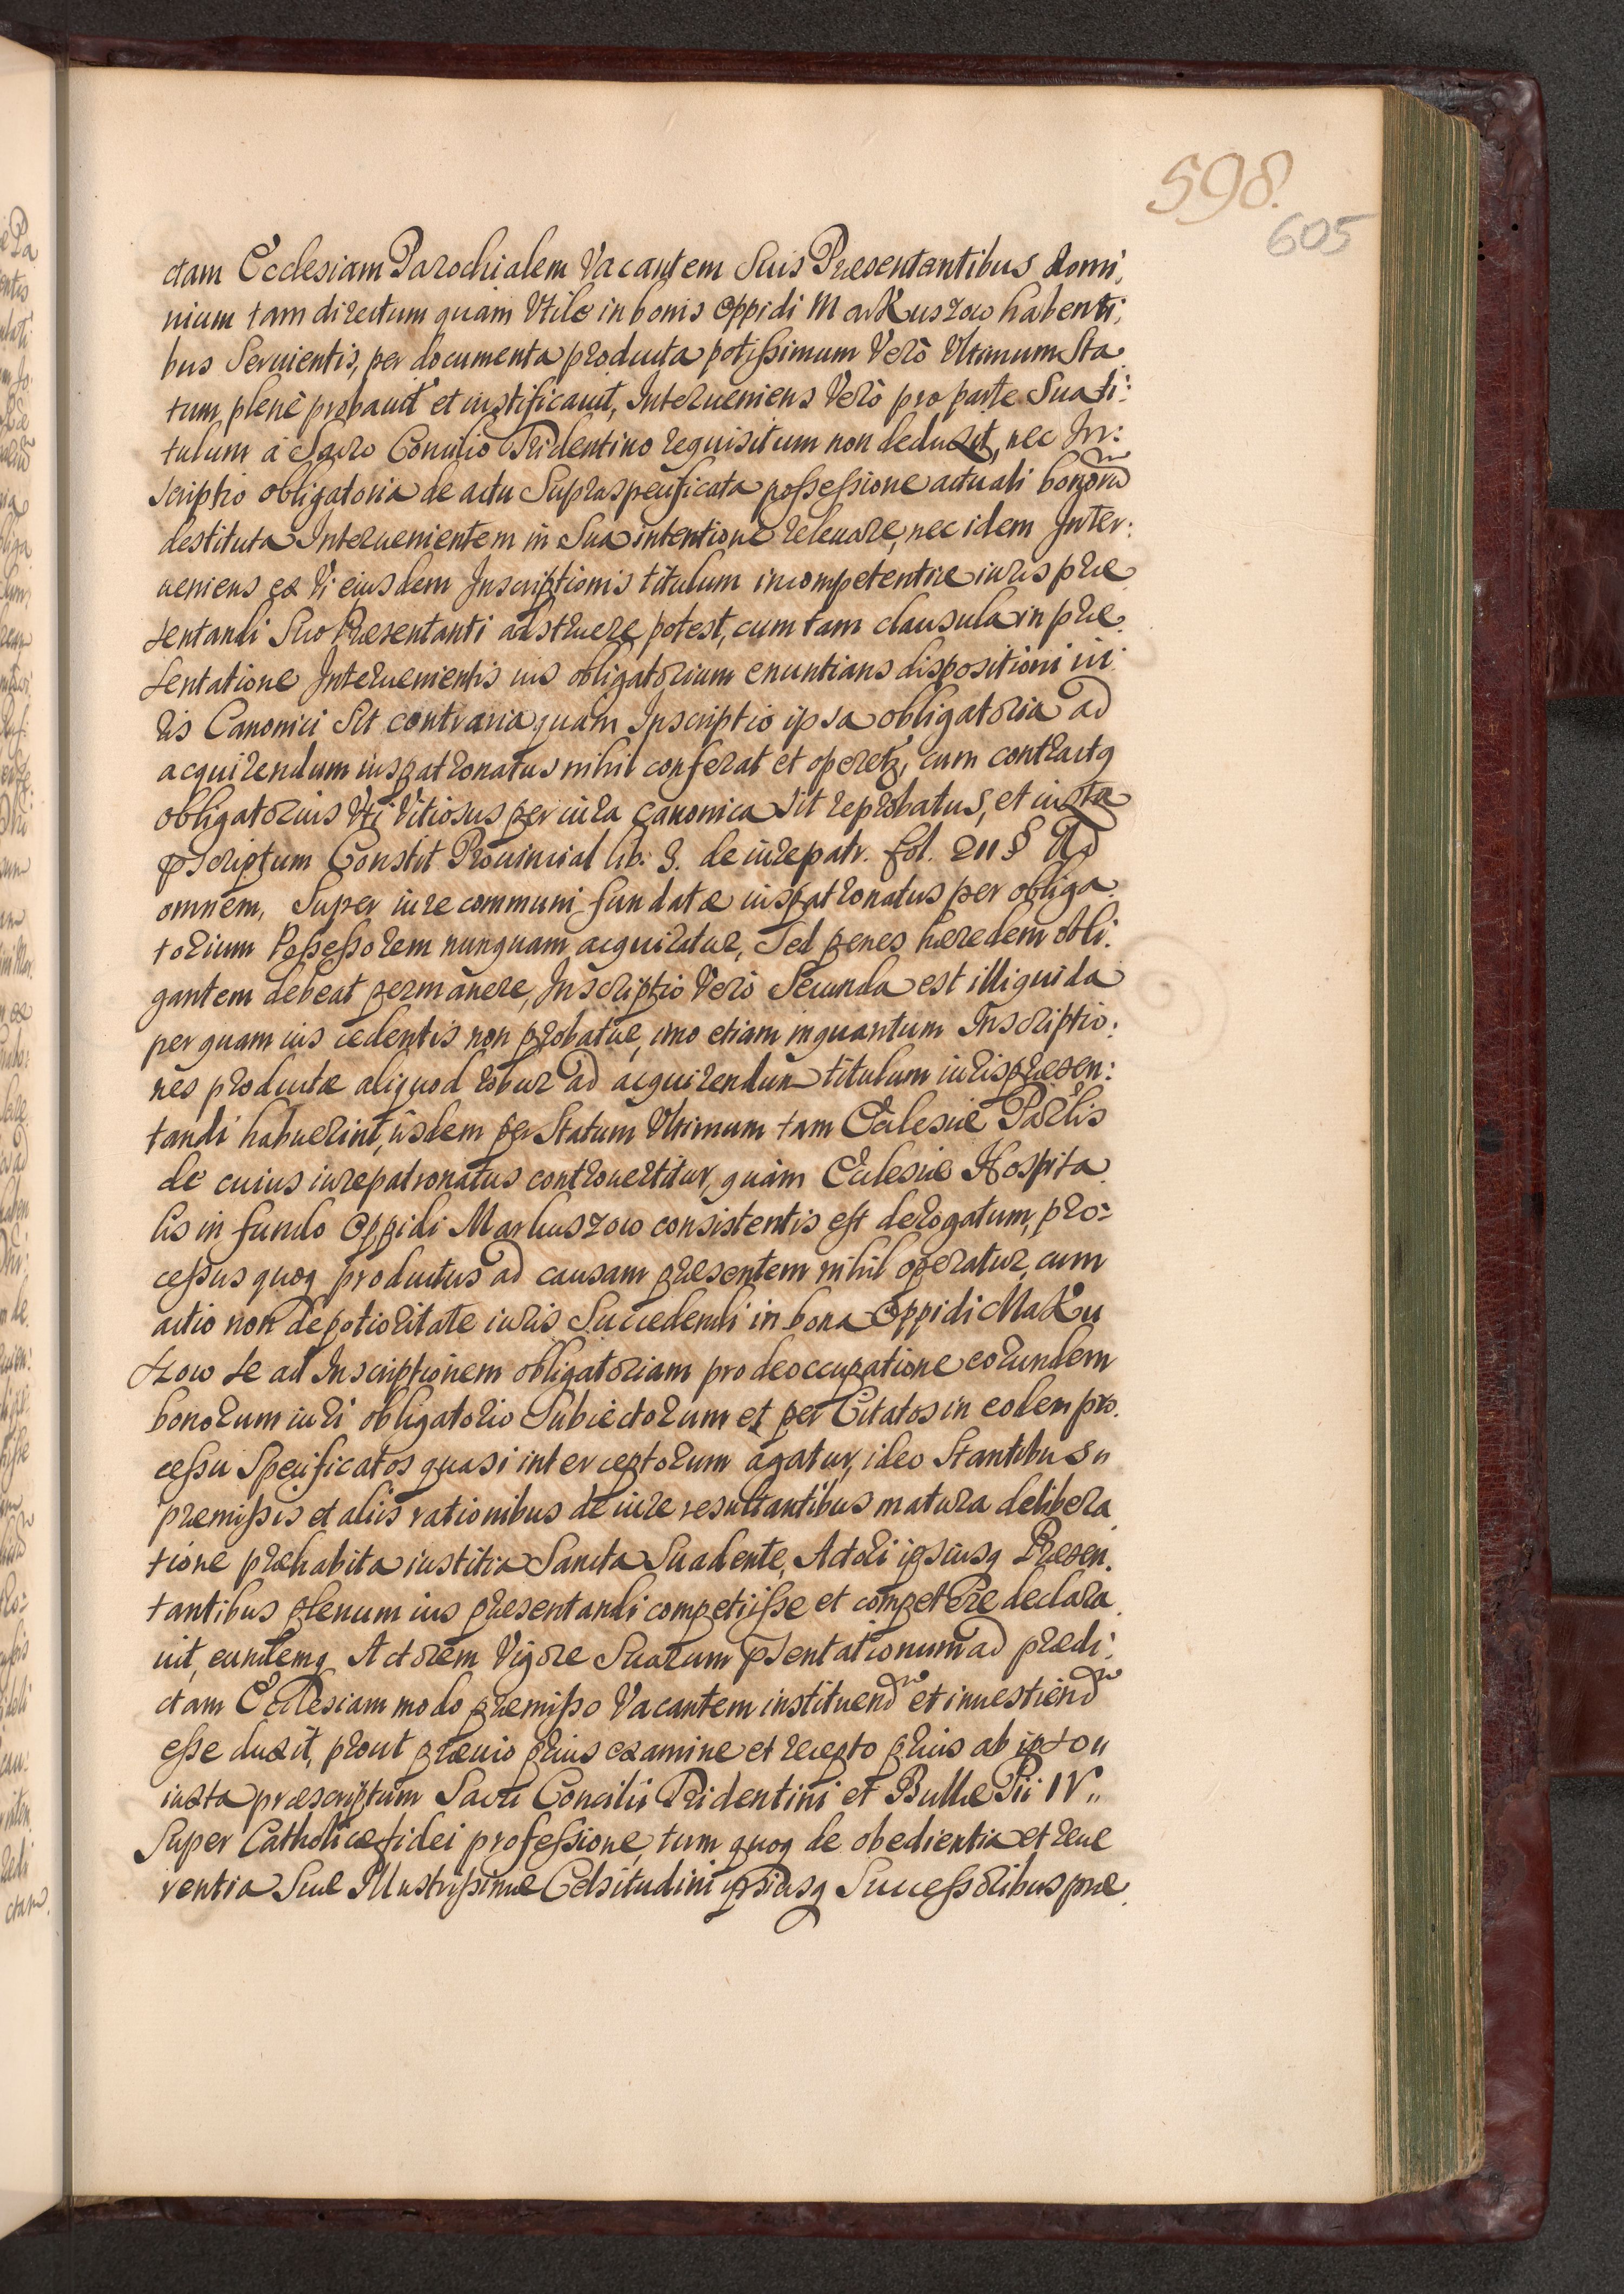 598.
605
ctam Ecclesiam Parochialem Vacantem Suis Præsentantibus domi,
nium tam directum quam Vtile in bonis oppidi MarKuszow habenti,
bus Seruientis, per documenta producta potissimum Verò Vltimum Sta
tum, plenè probauit et iustificauit, Interueniens Verò pro parte Sua ti:
tulum à Sacro Concilio Tridentino requisitum non deduxit, nec In:
scriptio obligatoria de actu Supraspecificata possessione actuali bonorũ
destituta Interuenientem in Sua intentione releuare, nec idem Inter:
ueniens ex Vi eiusdem Inscriptionis titulum incompetentiæ iuris præ
sentandi Suo Præsentanti adstruere potest, cum tam clausula in præ
sentatione Interuenientis ius obligatorium enuntians dispositioni iu:
ris Canonici Sit contraria quam Inscriptio ipsa obligatoria ad
acquirendum iuspatronatus nihil conferat et operetz, cum contractq
obligatorius Vti Vitiosus per iura canonica Sit reprobatus, et iuxta
pscriptum Constit Prouincial lib: 3. de iurepatr. fol. 211 § Ad
omnem, Super iure communi fundatæ iuspatronatus per obliga
torium Possessorem nunquam acquiratur, Sed penes hæredem obli.
gantem debeat permanere, Inscriptio Verò Secunda est illiquida
per quam ius cedentis non probatur, imo etiam inquantum Inscriptio:
nes productæ aliquod robur ad acquirendum titulum iuris præsen:
tandi habuerint, iisdem per Statum Vltimum tam Ecclesiæ Parlis
de cuius iurepatronatus controuertitur, quàm Ecclesiæ Hospita
lis in fundo Oppidi Markuszow consistentis est derogatum, pro:
cessus quoq productus ad causam præsentem nihil operatur, cum
actio non de potioritate iuris Succedendi in bona Oppidi MaKu
szow se ad Inscriptionem obligatoriam pro deoccupatione eorundem
bonorum iuri obligatorio Subiectorum et per Citatos in eodem pro.
cessu Specificatos quasi interceptorum agatur, ideo Stantibus in
præmissis et aliis rationibus de iure resultantibus matura delibera
tione præhabita iustitia Sancta Suadente, Actori ipsiusq Præsen.
tantibus plenum ius præsentandi competiisse et competere declara
uit, eundemq Actorem Vigore Suarum psentationum ad prædi:
ctam Ecclesiam modo præmisso Vacantem instituendũ et inuestiendũ
esse duxit, prout præuio prius examine et recepto prius ab ipso u
iuxta præscriptum Sacri Concilii Tridentini et Bullæ Pii IV..
Super Catholicæ fidei professione, tum quoq de obedientia et reue
rentia Suæ Illustrissimæ Celsitudini ipsiusq Successoribus præ